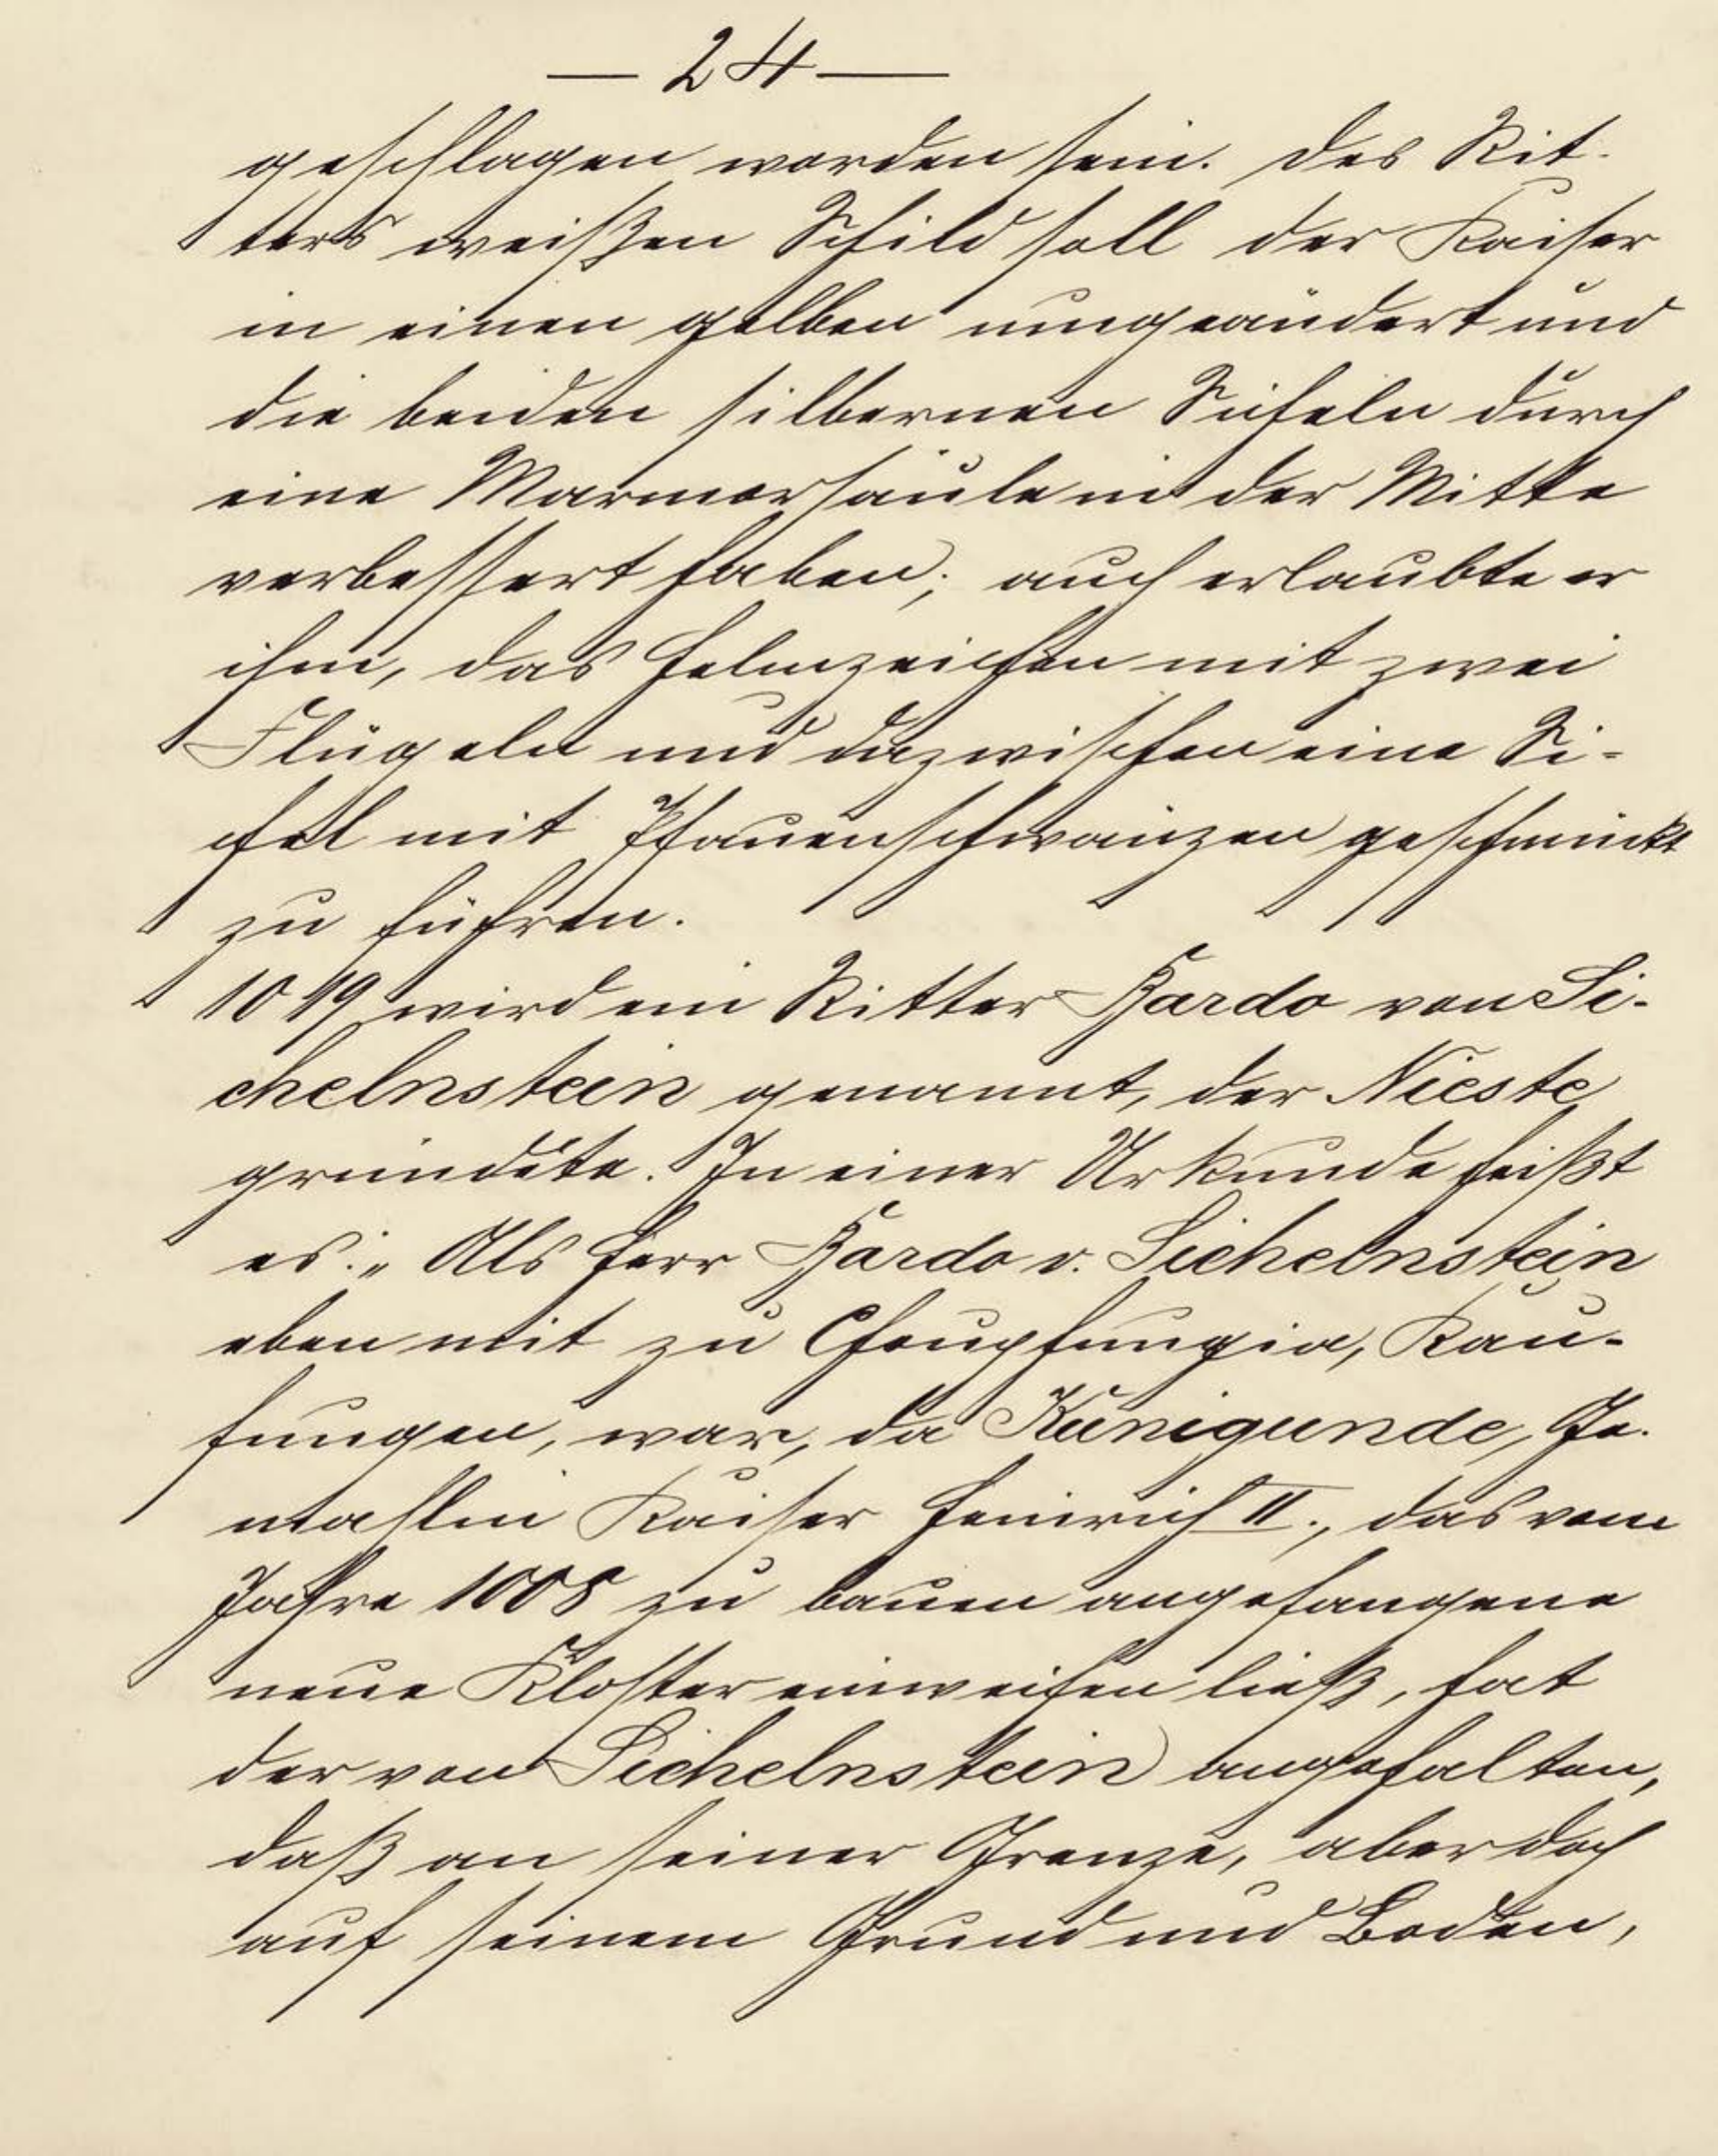 — 24 —
geschlagen worden sein. Des Rit-
ters weißen Schild soll der Kaiser
in einen gelben umgeändert und
die beiden silbernen Sicheln durch
eine Marmorsäule in der Mitte
verbessert haben; auch erlaubte er
ihm, das Helmzeichen mit zwei
Flügeln und dazwischen eine Si-
chel mit Pfauenschwänzen geschmückt
zu führen.
1019 wird ein Ritter Bardo von Si-
chelnstein genannt, der Nieste
gründete. In einer Urkunde heißt
es: „Als Herr Bardo v. Sichelnstein
eben mit zu Choupfungia, Kau-
fungen, war, da Kunigunde, Ge-
mahlin Kaiser Heinrich II., das vom
Jahre 1008 zu bauen angefangene
neue Kloster einweihen ließ, hat
der von Sichelnstein angehalten,
daß an seiner Grenze, aber doch
auf seinem Grund und Boden,